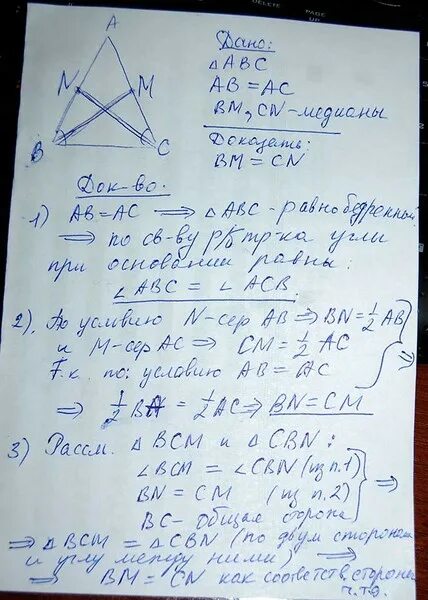 DELETE
PAGE UP
A
N
M
B
C
Дано:
△ABC
AB = AC
BM, CN - медианы
Доказать:
BM = CN
Док-во.
1) AB = AC ⟹ △ABC - равнобедренный
⟹ по св-ву р/б тр-ка углы
при основании равны:
∠ABC = ∠ACB
2). По условию N-сер AB ⟹ BN = ½ AB
и M-сер AC ⟹ CM = ½ AC
Т.к. по условию AB = AC
⟹
⟹ ½ BA = ½ AC ⟹ BN = CM
3) Рассм. △BCM и △CBN:
∠BCM = ∠CBN (из п.1)
BN = CM (из п.2)
BC - общая сторона
⟹
⟹ △BCM = △CBN (по двум сторонам
и углу между ними) ⟹
⟹ BM = CN как соответств. стороны
ч.т.д.